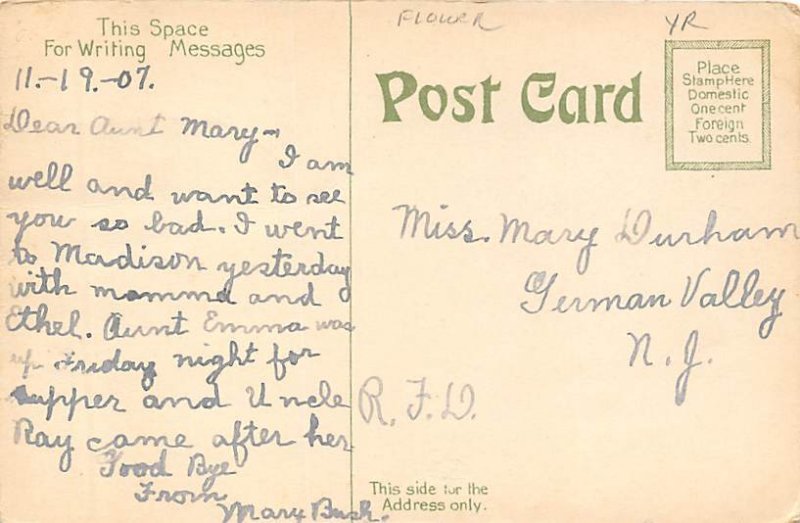 This Space
For Writing Messages
11.-19.-07.
Dear Aunt Mary-
I am
well and want to see
you so bad. I went
to Madison yesterday
with momma and
Ethel. Aunt Emma was
up Friday night for
supper and Uncle
Ray came after her
Good Bye
From
Mary Bush.
FLOWER
YR
Post Card
Place
Stamp Here
Domestic
One cent
Foreign
Two cents.
Miss. Mary Durham
German Valley
N. J.
R. F. D.
This side for the
Address only.